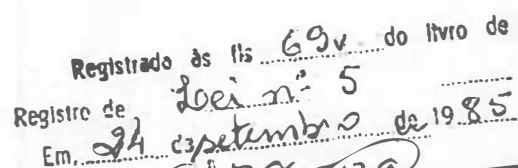 Registrado às fls 69v do livro de
Registro de Lei nº 5
Em, 24 de setembro de 1985